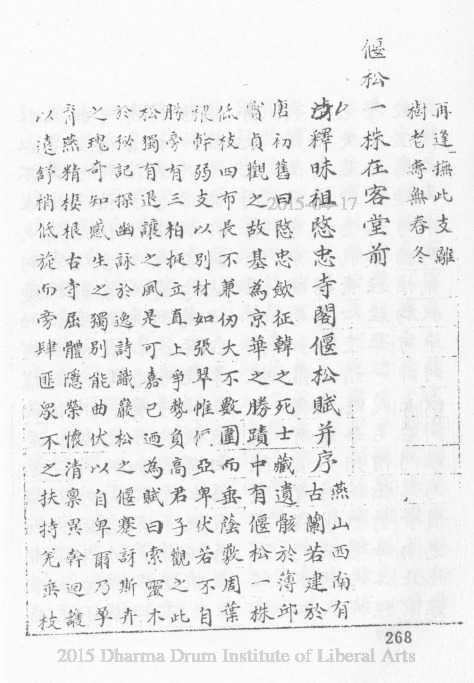 再逢撫此支離
樹老專無春冬
偃松一株在客堂前
清釋昧祖愍忠寺閣偃松賦并序 燕山西南有
古蘭若建於
唐初舊曰愍忠斂征韓之死士藏遺骸於薄邱
實貞觀之故基為京華之勝蹟中有偃松一株
低枝四布長不兼仞大不數圍而垂蔭數周葉
根幹弱支以別材如張翠帷亞卑伏若不自
勝旁有三柏挺立直上爭勢負高君子觀之此
松獨有退讓之風是可嘉已迺為賦曰索靈木
於秘記探幽詠於逸詩識嚴松之偃蹇訝斯卉
之瑰奇知感生之獨別能曲伏以自卑爾乃孕
育燕精棲根古寺屈體隱榮懷清稟異幹迴護
以遠舒梢低旋而旁肆匪眾不之扶持羌垂枝
268
2015-04-17
2015 Dharma Drum Institute of Liberal Arts